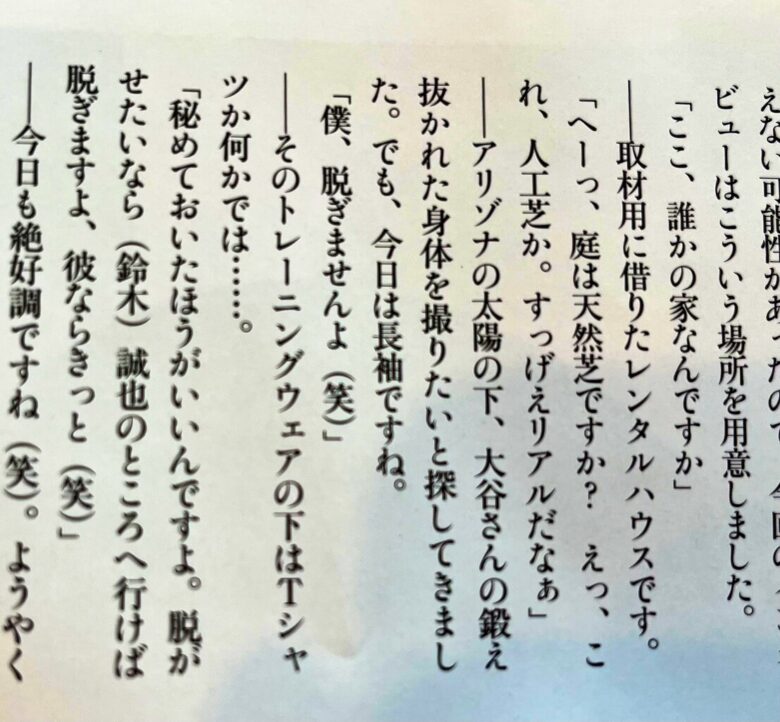 えない可能性があったので、今回のインタ
ビューはこういう場所を用意しました。
「ここ、誰かの家なんですか」
――取材用に借りたレンタルハウスです。
「へーっ、庭は天然芝ですか? えっ、こ
れ、人工芝か。すっげえリアルだなぁ」
――アリゾナの太陽の下、大谷さんの鍛え
抜かれた身体を撮りたいと探してきまし
た。でも、今日は長袖ですね。
「僕、脱ぎませんよ(笑)」
――そのトレーニングウェアの下はTシャ
ツか何かでは……。
「秘めておいたほうがいいんですよ。脱が
せたいなら(鈴木)誠也のところへ行けば
脱ぎますよ、彼ならきっと(笑)」
――今日も絶好調ですね(笑)。ようやく